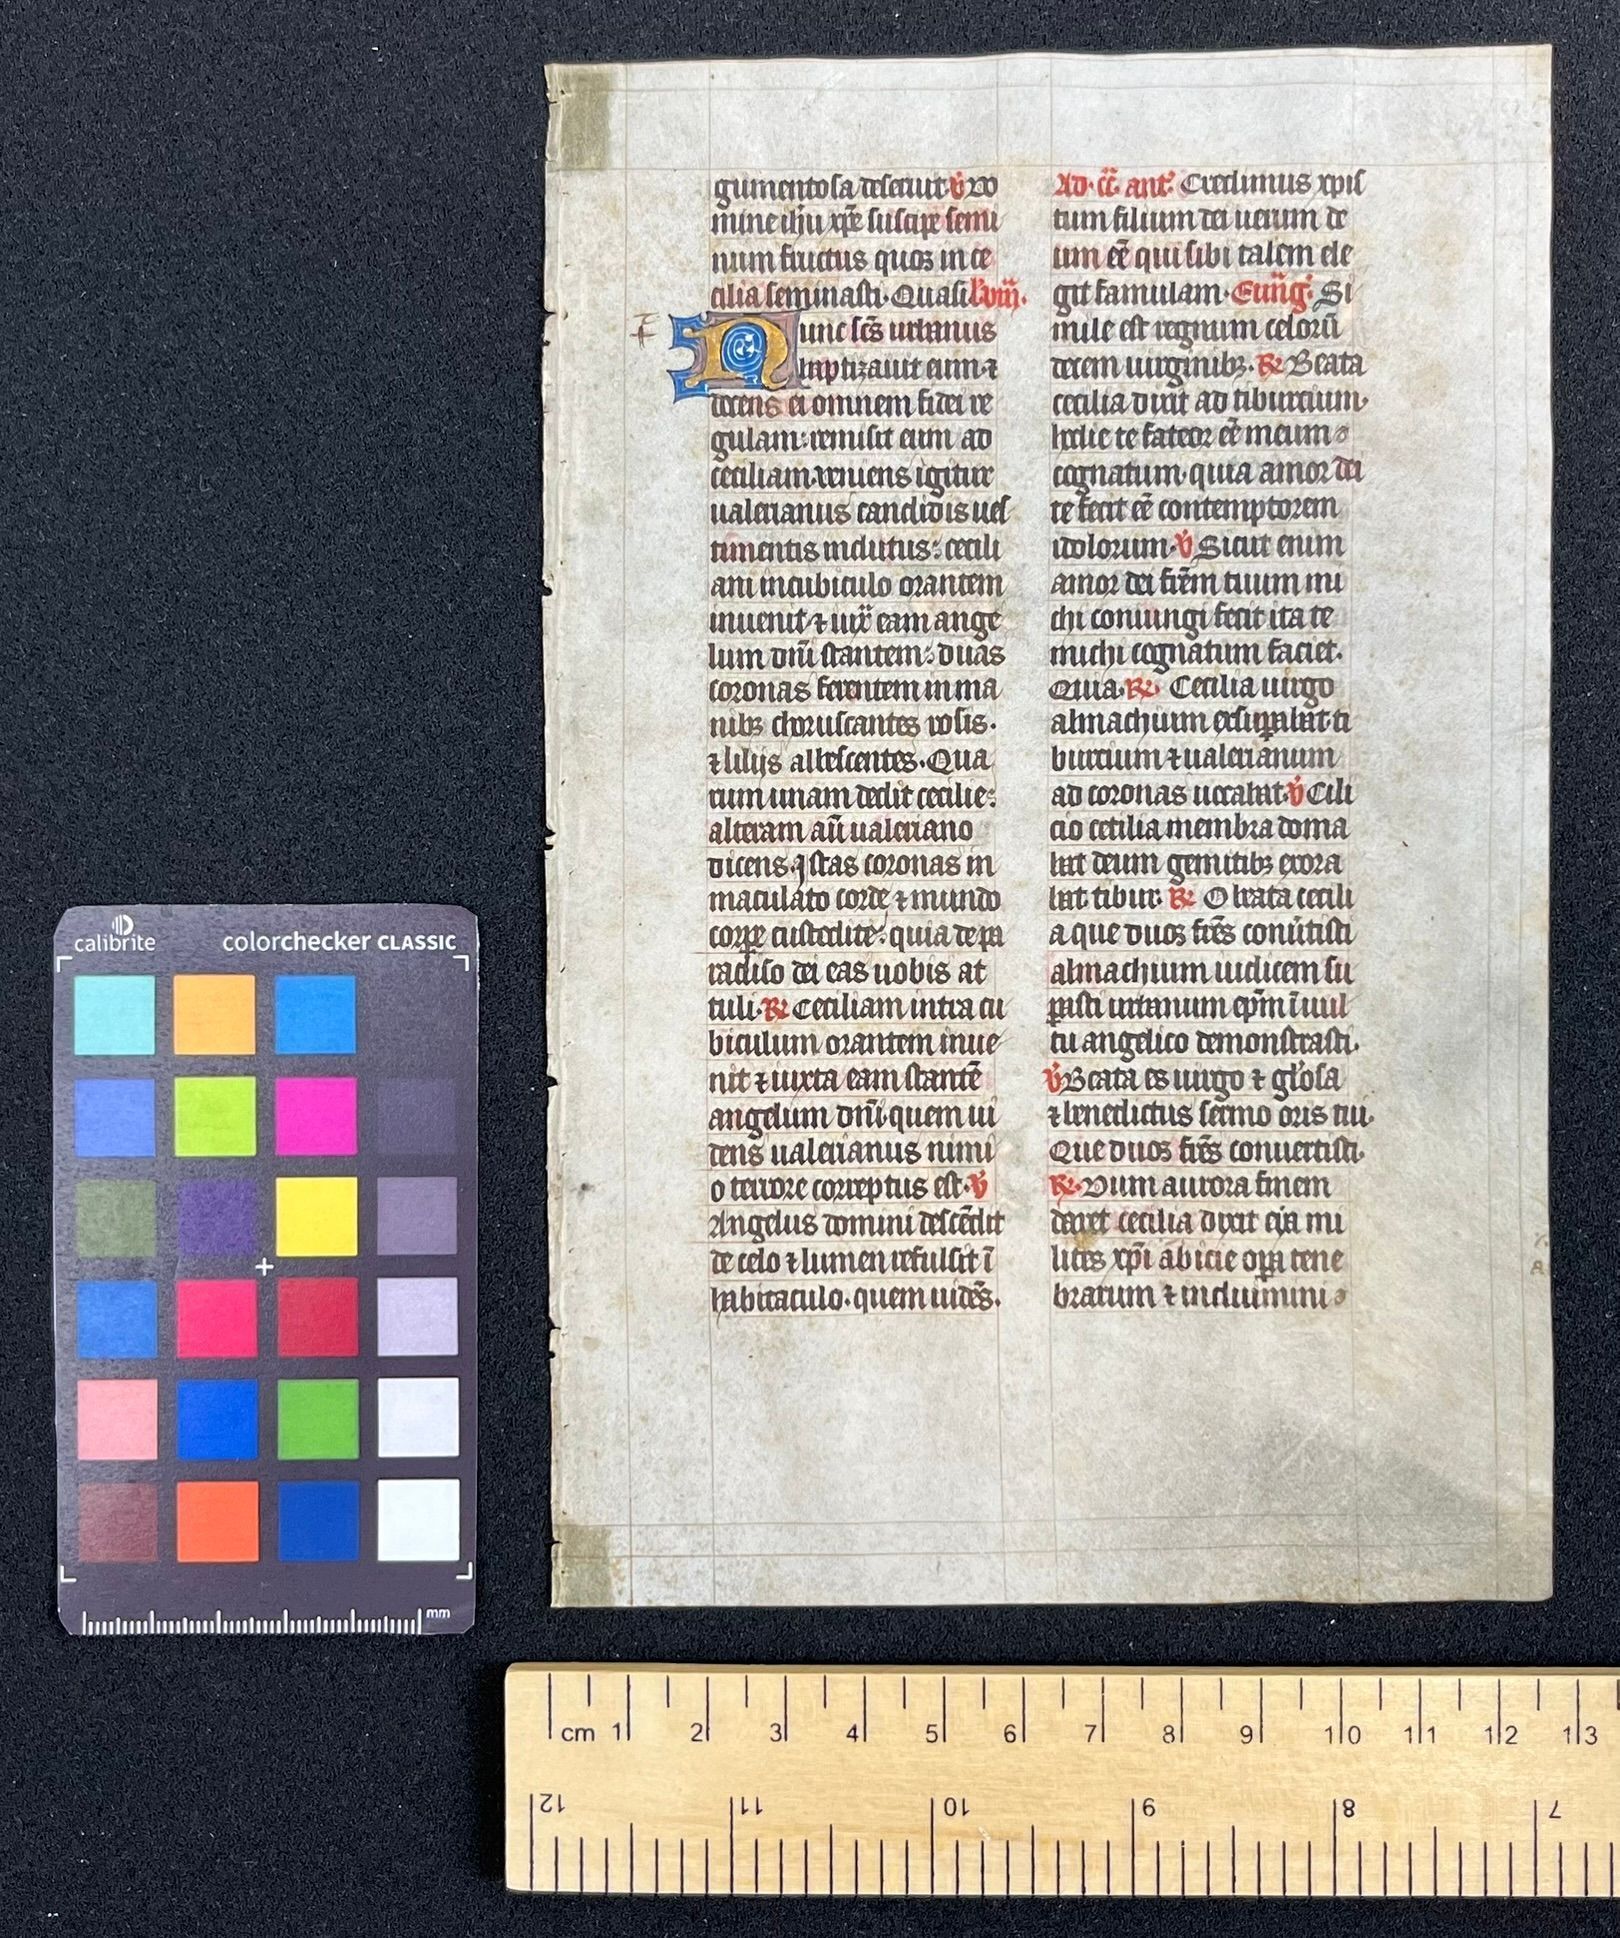 gumentosa deseruit. V̇ Do
mine ih̄u xp̄e suscipe semi
num fructus quos in ce
cilia seminasti. Quasi. l'. viii.
Nunc sc̄s urbanus
baptizauit eum ⁊
docens ei omnem fidei re
gulam: remisit eum ad
ceciliam. veniens igitur
ualerianus candidis ues
timentis indutus: cecili
am in cubiculo orantem
inuenit. ⁊ iux̄ eam ange
lum dn̄i stantem: duas
coronas ferentem in ma
nibꝫ choruscantes rosis.
⁊ lilijs albescentes. Qua
rum unam dedit cecilie:
alteram aū ualeriano
dicens. Istas coronas in
maculato corde ⁊ mundo
corꝑe custodite: quia de pa
radiso dei eas uobis at
tuli. ℞ Ceciliam intra cu
biculum orantem inue
nit ⁊ iuxta eam stantē
angelum dn̄i. quem ui
dens ualerianus nimi
o terrore correptus est. V̇
Angelus domini descēdit
de celo ⁊ lumen refulsit ī
habitaculo. quem uidēs.
Ad. cc̄. ant'. Credimus xpis
tum filium dei uerum de
um eē qui sibi talem ele
git famulam. Euūg. Si
mile est regnum celorū
decem uirginibꝫ. ℞ Beata
cecilia dixit ad tiburcium.
hodie te fateor eē meum
cognatum. quia amor dei
te fecit eē contemptorem
idolorum. V̇ Sicut enim
amor dei fr̄em tuum mi
chi coniungi fecit ita te
michi cognatum faciet.
Quia. ℞. Cecilia uirgo
almachium exsuꝑabat. ti
burcium ⁊ ualerianum
ad coronas uocabat. V̇ Cili
cio cecilia membra doma
bat deum gemitibꝫ exora
bat tibur. ℞ O beata cecili
a que duos fr̄es conūtisti
almachium iudicem su
ꝑasti urbanum ep̄m ī uul
tu angelico demonstrasti.
V̇ Beata es uirgo ⁊ gl'osa
⁊ benedictus sermo oris tui.
Que duos fr̄es conuertisti.
℞. Dum aurora finem
daret cecilia dixit eja mi
lites xp̄i abicite oꝑa tene
bratum ⁊ induimini
calibrite
colorchecker CLASSIC
mm
cm 1 2 3 4 5 6 7 8 9 10 11 12 13
12 11 10 9 8 7